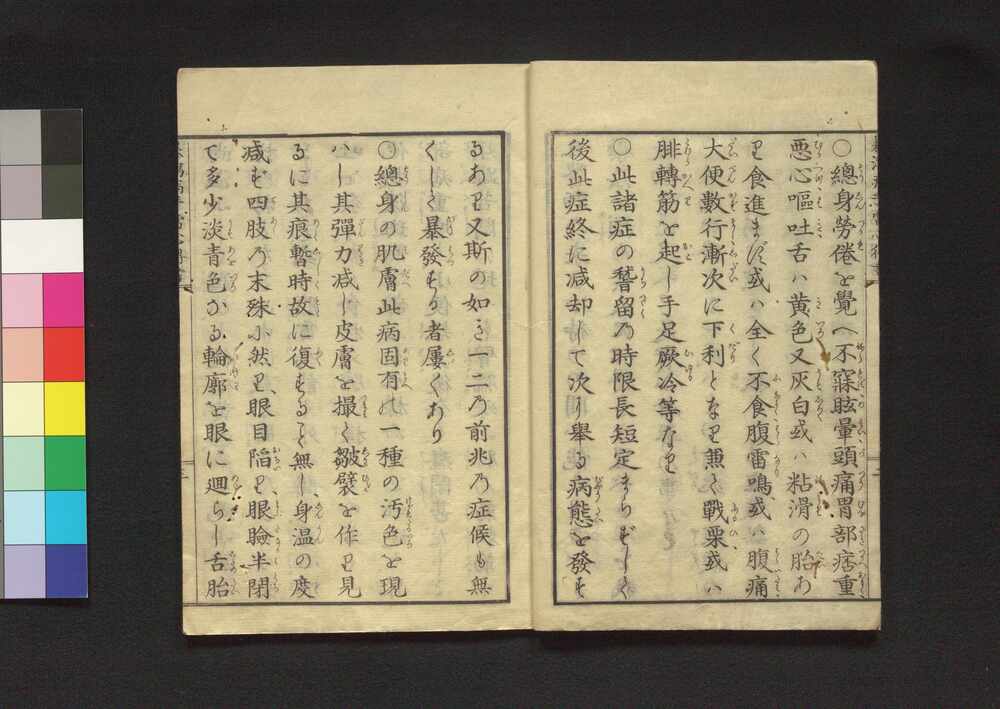 ○總身勞倦を覺へ不寐眩暈頭痛胃部痞重
悪心嘔吐舌ハ黄色又灰白或ハ粘滑の胎あ
り食進まず或ハ全く不食腹雷鳴或ハ腹痛
大便數行漸次に下利となり兼て戰栗或ハ
腓轉筋を起し手足厥冷等なり
○此諸症の稽留乃時限長短定まらずしく
後此症終に减却して次に擧る病態を發す
るあり又斯の如き一二乃前兆乃症候も無
くして暴發する者屢くあり
○總身の肌膚此病固有の一種の汚色を現
ハし其彈力减し皮膚を撮く皺襞を作り見
るに其痕暫時故に復すること無し身温の度
减ず四肢乃末殊に然り眼目陥り眼瞼半閉
て多少淡青色なる輪廓を眼に廻らし舌胎